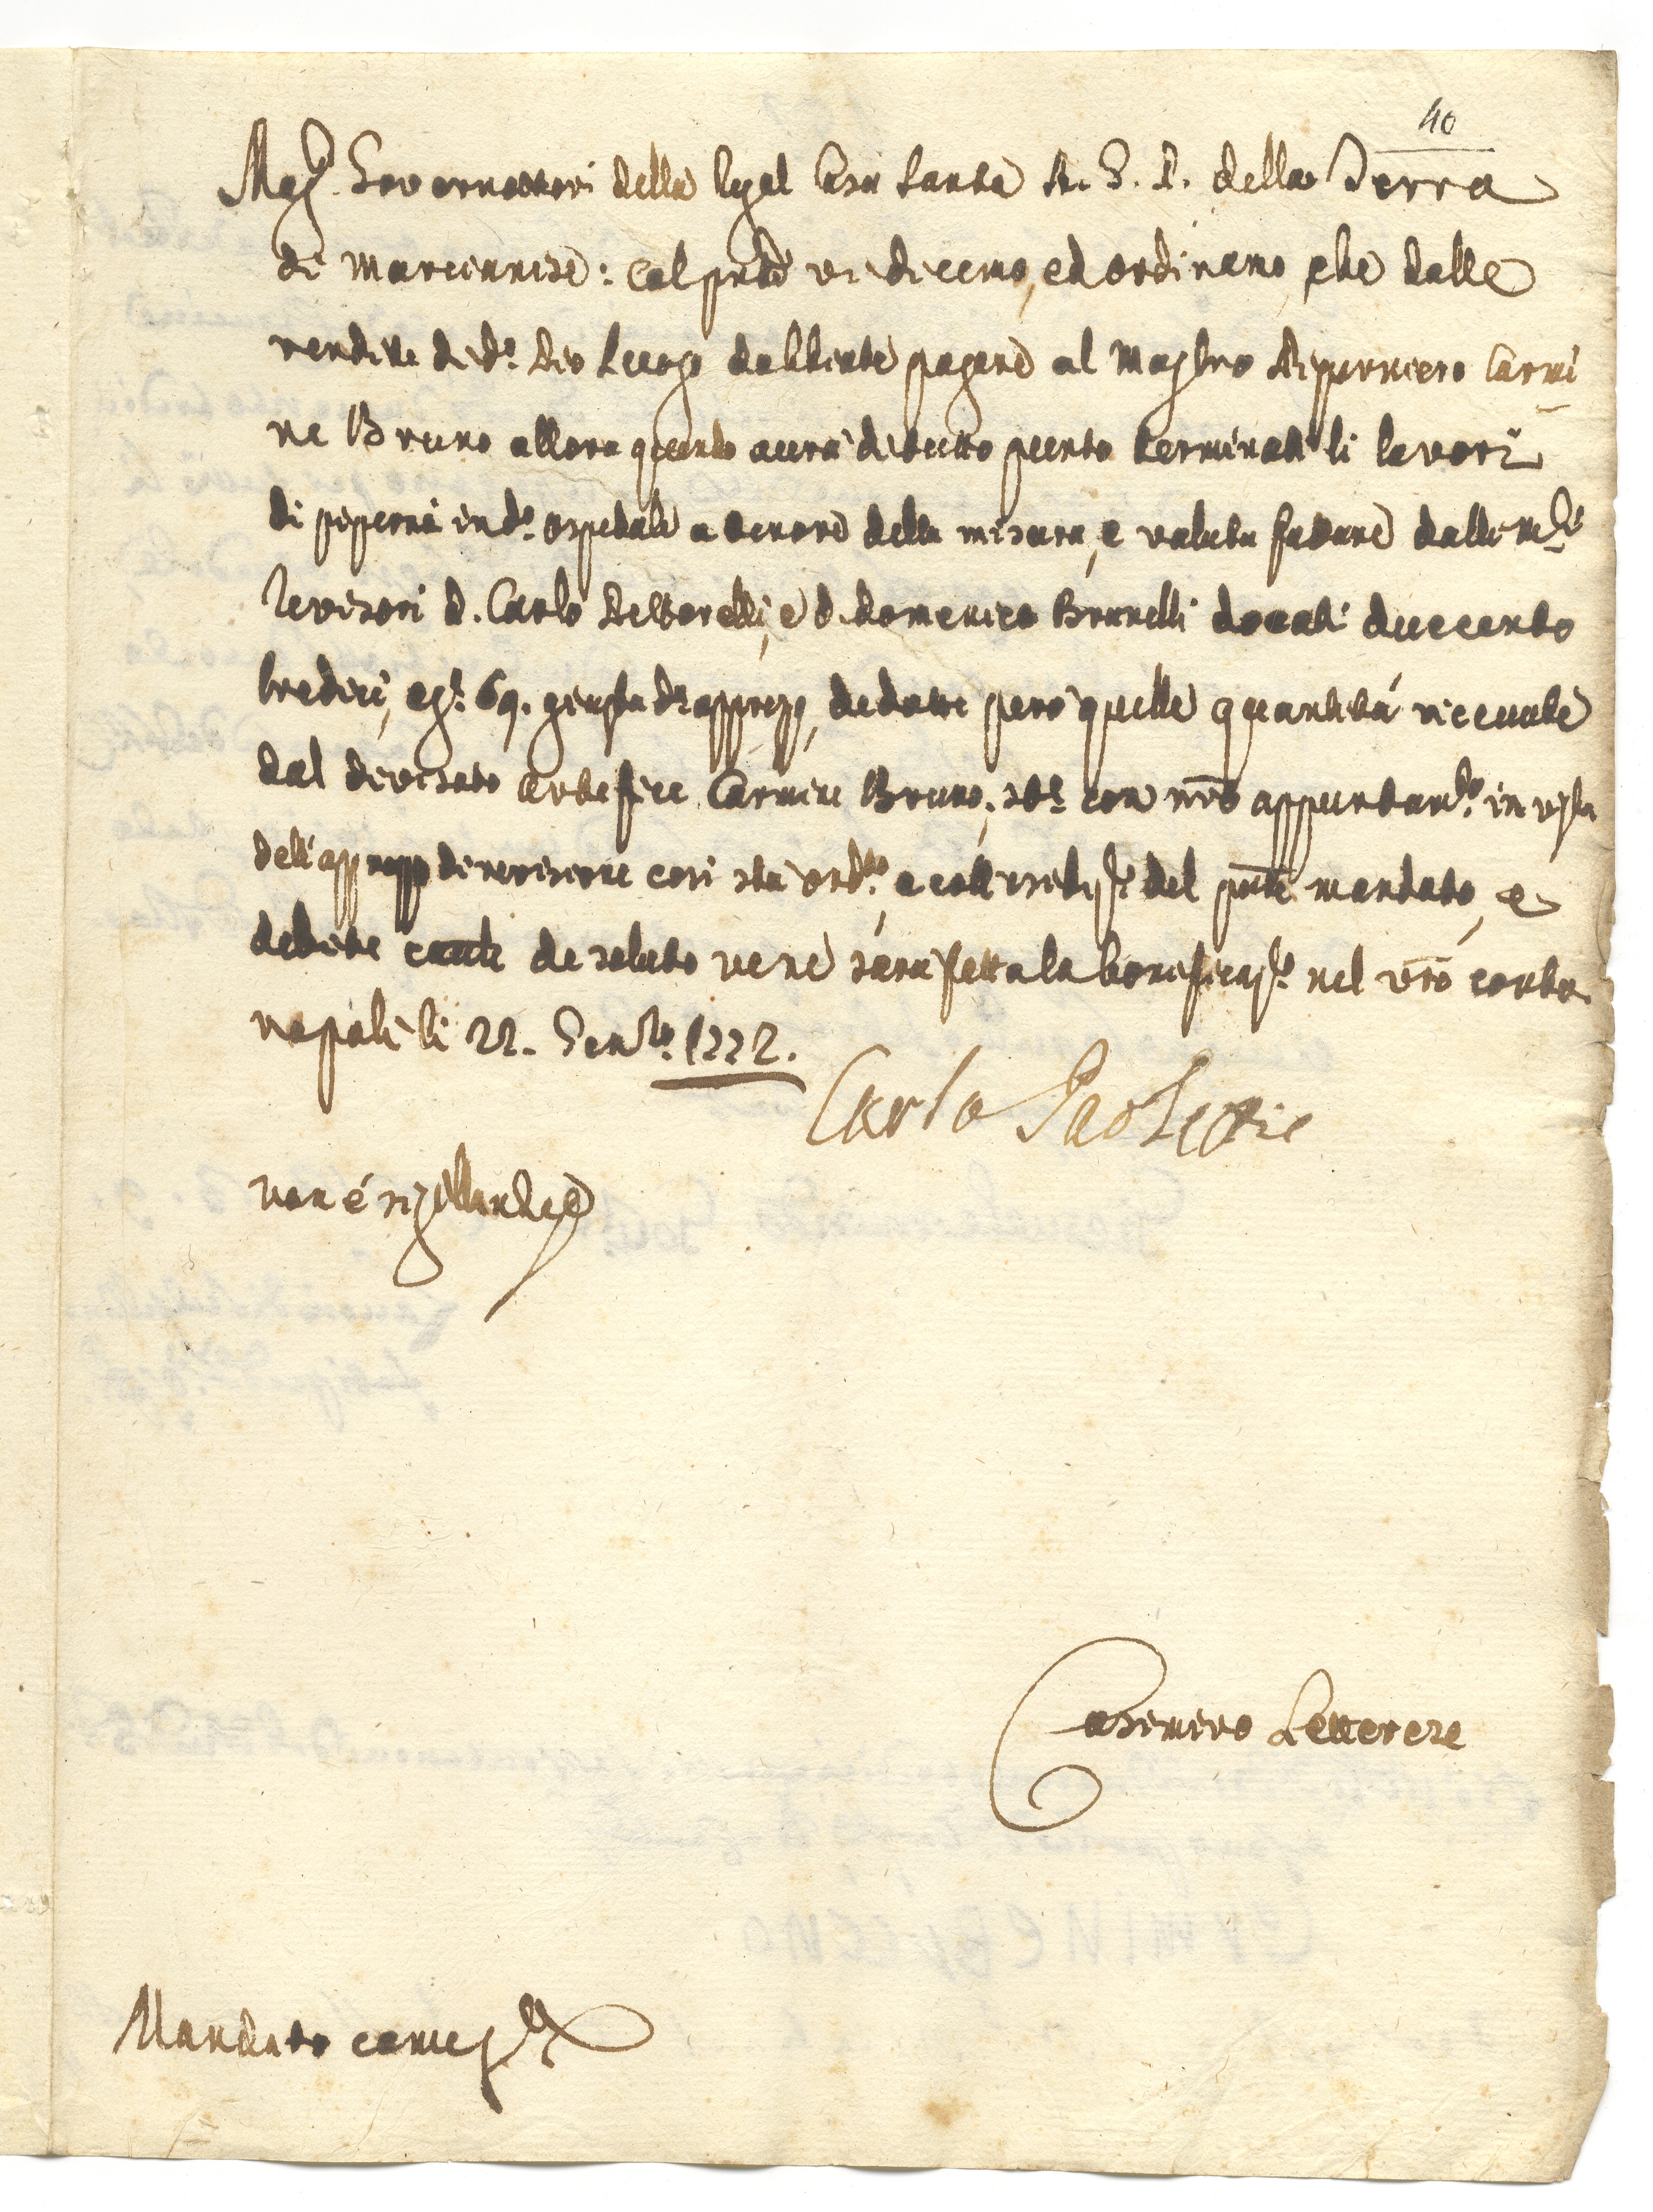 40
Mag.ci Governattori della Regal Casa Santa A. G. P. della Terra
di Marcianise: Col pnte vi dicemo, ed ordinamo, che dalle
rendite di d.o Pio Luogo dobbiate pagare al Mastro Piperniero Carmi
ne Bruno allora quando avrà di tutto punto terminati li lavori
di piperni in d.o ospedale a tenore della misura, e valuta fattane dalli
Revisori d. Carlo Pettorelli, e d. Domenico Brunelli docati duecento
tredici, e g.a 69. giusta d.o apprezzo, dedotte però quelle quantità ricevute
dal divisato Artefice Carmine Bruno; st.e con nrō appuntam.to in vista
dell'apprezzo di revisione così sta ord.to, e coll'esibiz.e del pnte mandato, e
debite cautele de soluto vene sarà fatta la bonificaz.e nel vrō conto.
Napoli li 22. 1772.
Carlo
non è sigillando
Casimiro Letterese
Mandato